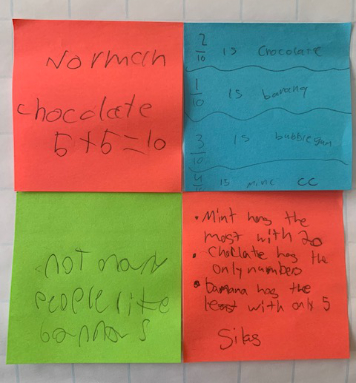 Norman
chocolate
5+5=10
2/10 is chocolate
1/10 is
3/10 is bubblegum
4/10 is mint CC
not many
people like
bannas
• Mint has the
most with 20
• Choclate has th
only number
• banana has the
least with only 5
Silas